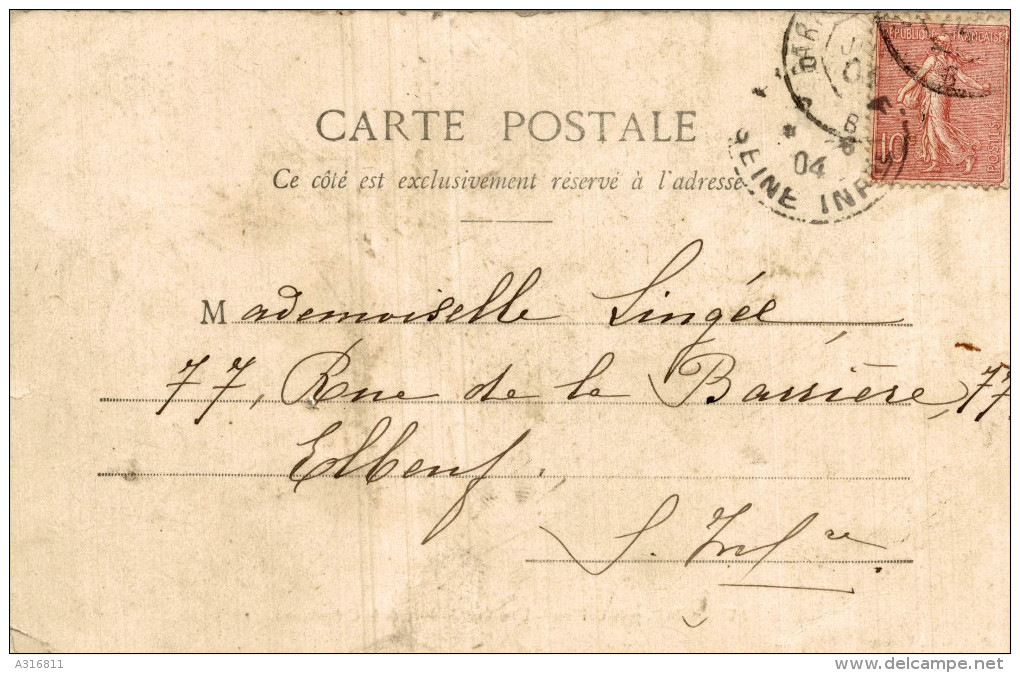 RÉPUBLIQUE FRANÇAISE
10
POSTES
04
SEINE INF
CARTE POSTALE
Ce côté est exclusivement réservé à l'adresse
Mademoiselle Lingée
77, Rue de la Barrière, 77
Elbeuf.
S. Infre
A316811
delcampe.net